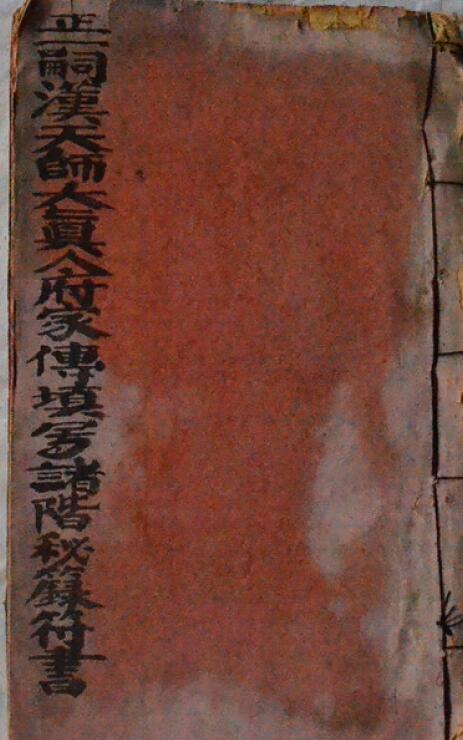 正一嗣漢天師大真人府家傳填写諸階秘籙符書